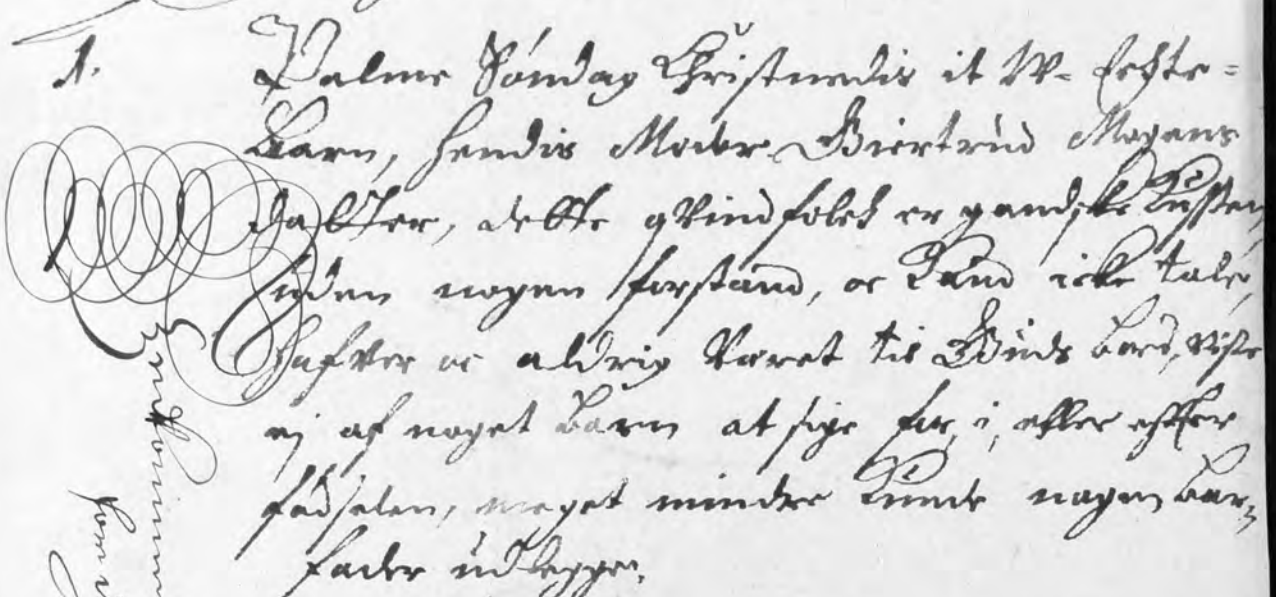 1. Palme Søndag Christnedis it W- Echte=
Barn, hendis Moder Giertrud Mogens
daatter, dette qvindfolck er gandske
uden nogen forstand, oc kand icke tale,
hafver oc aldrig været til Guds bord, viste
ej af noget barn at sige før, i, eller effter
fødselen, meget mindre kunde nogen bar=
fader udlegge.